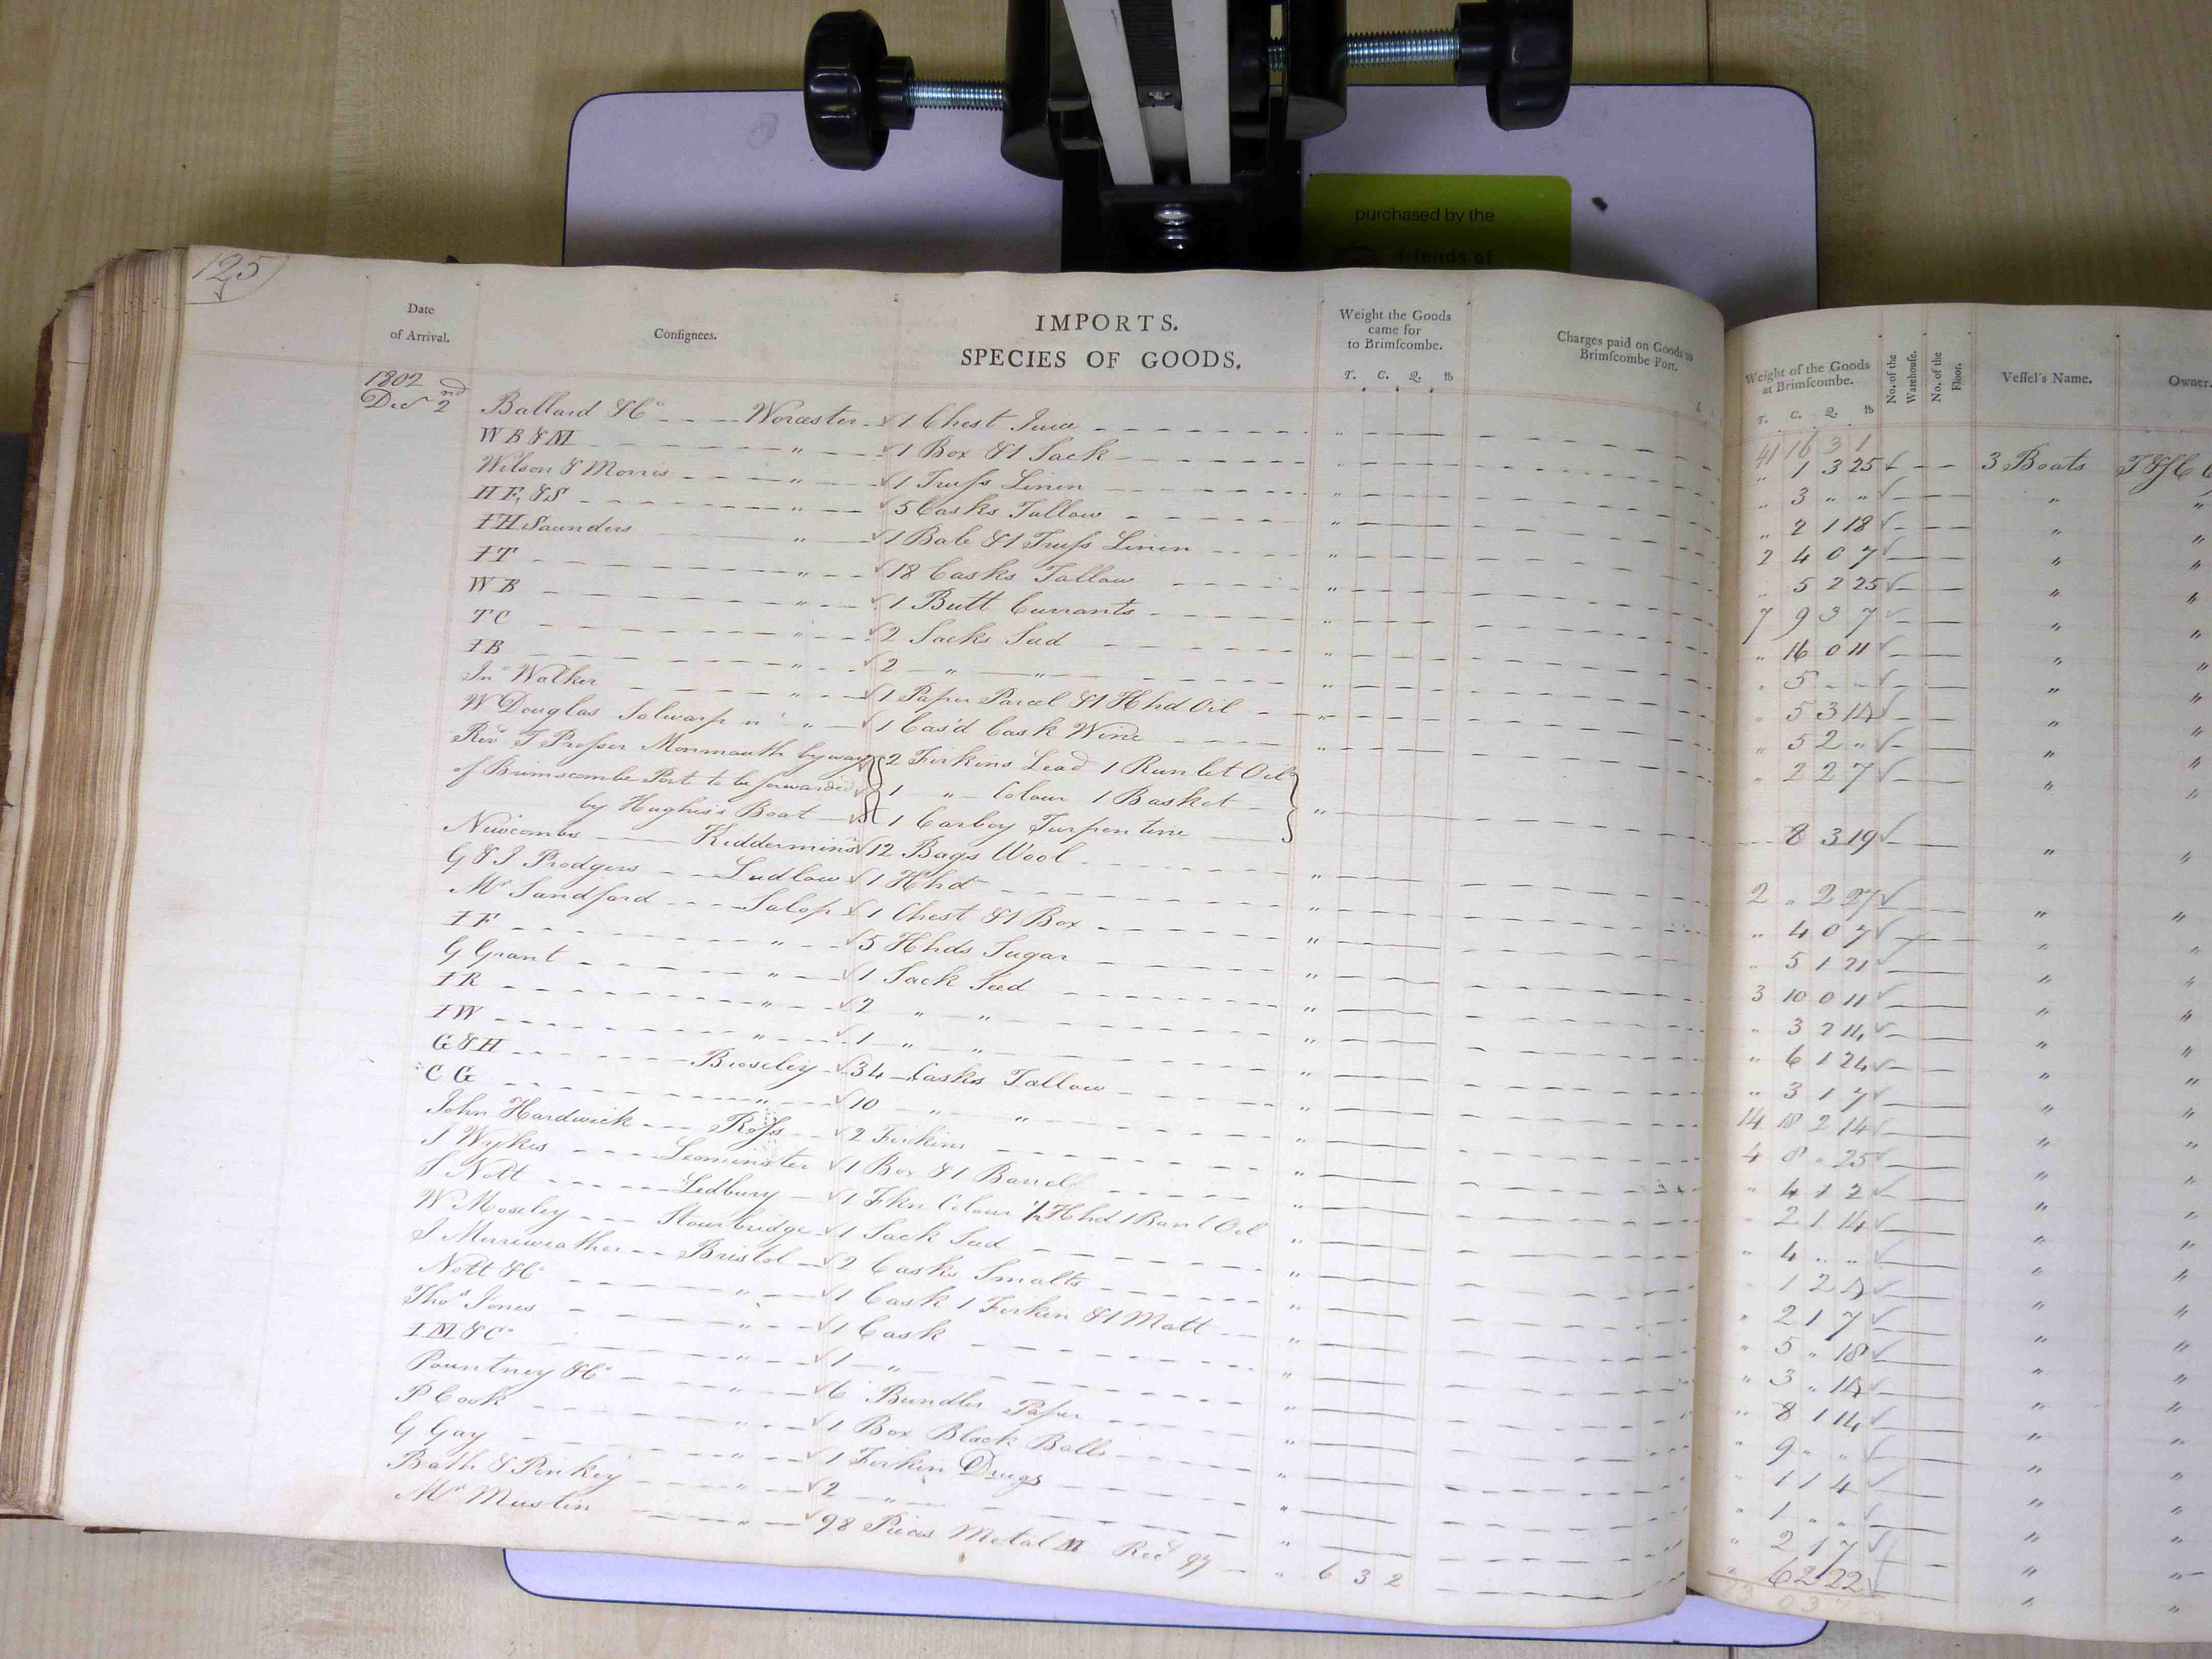 purchased by the
friends of
125
Date
of Arrival.
Consignees.
IMPORTS.
SPECIES OF GOODS.
Weight the Goods
came for
to Brimscombe.
T. C. Q. lb
Charges paid on Goods to
Brimscombe Port.
Weight of the Goods
at Brimscombe.
T. C. Q. lb
No. of the
Warehouse.
No. of the
Floor.
Vessel's Name.
Owner.
41 16 3 1
1802
Decr 2nd Ballard & Co Worcester 1 Chest Juice " " 1 3 25 3 Boats
WB&M " 1 Box & 1 Sack " " 3 " " " "
Wilson & Morris " 1 Truss Linen " " 2 1 18 " "
HE,&S " 5 Casks Tallow " 2 4 0 7 " "
IH Saunders " 1 Bale & 1 Truss Linen " " 5 2 25 " "
IT " 18 Casks Tallow " 7 9 3 7 " "
WB " 1 Butt Currants " " 16 0 11 " "
TC " 2 Sacks Seed " " 5 " " " "
IB " 2 " " " " 5 3 14 " "
Jno Walker " 1 Paper Parcel & 1 Hhd Oil " " 5 2 " " "
W Douglas Salwarp nr " 1 Cas'd Cask Wine " " 2 2 7 " "
Revd T Prosser Monmouth by way 2 Firkins Lead 1 Runlet Oil
of Brimscombe Port to be forwarded 1 " Colour 1 Basket
by Hughes's Boat 1 Carboy Turpentine " 8 3 19 " "
Newcombs Kidderminsr 12 Bags Wool " 2 " 2 27 " "
G & J Prodgers Ludlow 1 Hhd " " 4 0 7 " "
Mr Sandford Salop 1 Chest & 1 Box " " 5 1 21 " "
IF " 5 Hhds Sugar " 3 10 0 11 " "
G Grant " 1 Sack Seed " " 3 2 14 " "
IR " 2 " " " " 6 1 24 " "
IW " 1 " " " " 3 1 7 " "
G&H Broseley 34 Casks Tallow " 14 18 2 14 " "
CG " 10 " " " 4 8 " 25 " "
John Hardwick Ross 2 Firkins " " 4 1 2 " "
J Wykes Leominster 1 Box & 1 Barrel " " 2 1 14 " "
S Nott Ledbury 1 Fkn Colour 1/2 Hhd 1 Runl Oil " " 4 " " " "
W Moseley Stourbridge 1 Sack Seed " 1 2 " "
J Merreweather Bristol 2 Casks Smalts " " 2 1 7 " "
Nott & Co " 1 Cask 1 Firkin & 1 Matt " " 5 " 18 " "
Thos Jones " 1 Cask " " 3 " 14 " "
IM&Co " 1 " " " 8 1 14 " "
Pountney & Co " 6 Bundles Paper " " 9 " " " "
P Cook " 1 Box Black Balls " " 1 1 4 " "
G Gay " 1 Firkin Drugs " " 1 " " " "
Bath & Pinkey " 2 " " " 2 1 7 " "
Mr Mustin " 98 Pieces Metal M Recd 97 " 6 3 2 " 6 2 22 " "